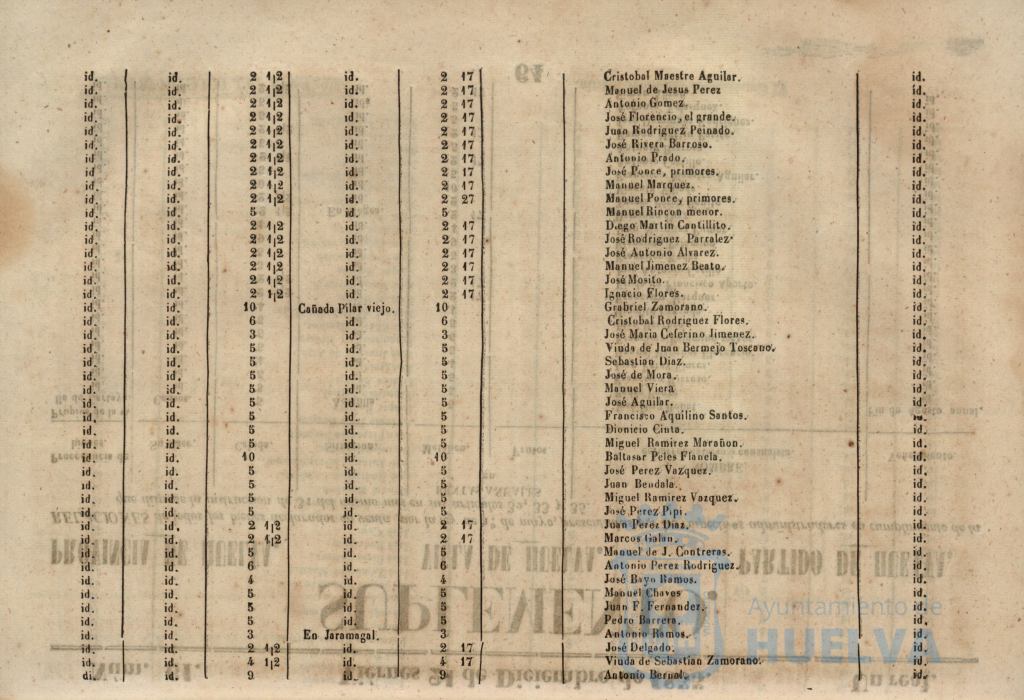 64
id. id. 2 1|2 id. 2 17 Cristobal Maestre Aguilar. id.
id. id. 2 1|2 id. 2 17 Manuel de Jesus Perez id.
id. id. 2 1|2 id. 2 17 Antonio Gomez. id.
id. id. 2 1|2 id. 2 17 José Florencio, el grande. id.
id. id. 2 1|2 id. 2 17 Juan Rodriguez Peinado. id.
id. id. 2 1|2 id. 2 17 José Rivera Barroso. id.
id id. 2 1|2 id. 2 17 Antonio Prado. id.
id. id. 2 1|2 id. 2 17 José Ponce, primores. id.
id. id. 2 1|2 id. 2 17 Manuel Marquez. id.
id. id. 2 1|2 id. 2 27 Manuel Ponce, primores. id.
id. id. 5 id. 5 Manuel Rincon menor. id.
id. id. 2 1|2 id. 2 17 Diego Martin Cantillito. id.
id. id. 2 1|2 id. 2 17 José Rodriguez Parralez id.
id. id. 2 1|2 id. 2 17 José Antonio Alvarez. id.
id. id. 2 1|2 id. 2 17 Manuel Jimenez Beato. id.
id. id. 2 1|2 id. 2 17 José Mosito. id.
id. id. 2 1|2 id. 2 17 Ignacio Flores. id.
id. id. 10 Cañada Pilar viejo. 10 Grabriel Zamorano. id.
id. id. 6 id. 6 Cristobal Rodriguez Flores. id.
id. id. 3 id. 3 José Maria Ceferino Jimenez. id.
id. id. 5 id. 5 Viuda de Juan Bermejo Toscano. id.
id. id. 5 id. 5 Sebastian Diaz. id.
id. id. 5 id. 5 José de Mora. id.
id. id. 5 id. 5 Manuel Viera id.
id. id. 5 id. 5 José Aguilar. id.
id. id. 5 id. 5 Francisco Aquilino Santos. id.
id. id. 5 id. 5 Dionicio Cinta. id.
id. id. 5 id. 5 Miguel Ramirez Marañon. id.
id. id. 10 id. 10 Baltasar Peles Flanela. id.
id. id. 5 id. 5 José Perez Vazquez. id.
id. id. 5 id. 5 Juan Bendala. id.
id. id. 5 id. 5 Miguel Ramirez Vazquez. id.
id. id. 5 id. 5 José Perez Pipi. id.
id. id. 2 1|2 id. 2 17 Juan Perez Diaz. id.
id. id. 2 1|2 id. 2 17 Marcos Galan. id.
id. id. 5 id. 5 Manuel de J. Contreras. id.
id. id. 6 id. 6 Antonio Perez Rodriguez. id.
id. id. 4 id. 4 José Bayo Ramos. id.
id. id. 5 id. 5 Manuel Chaves id.
id. id. 5 id. 5 Juan F. Fernandez. id.
id. id. 5 id. 5 Pedro Barrera. id.
id. id. 3 En Jaramagal. 3 Antonio Ramos. id.
id. id. 2 1|2 id. 2 17 José Delgado. id.
id. id. 4 1|2 id. 4 17 Viuda de Sebastian Zamorano. id.
di. id. 9 id. 9 Antonio Bernal. id.
Ayuntamiento de
HUELVA